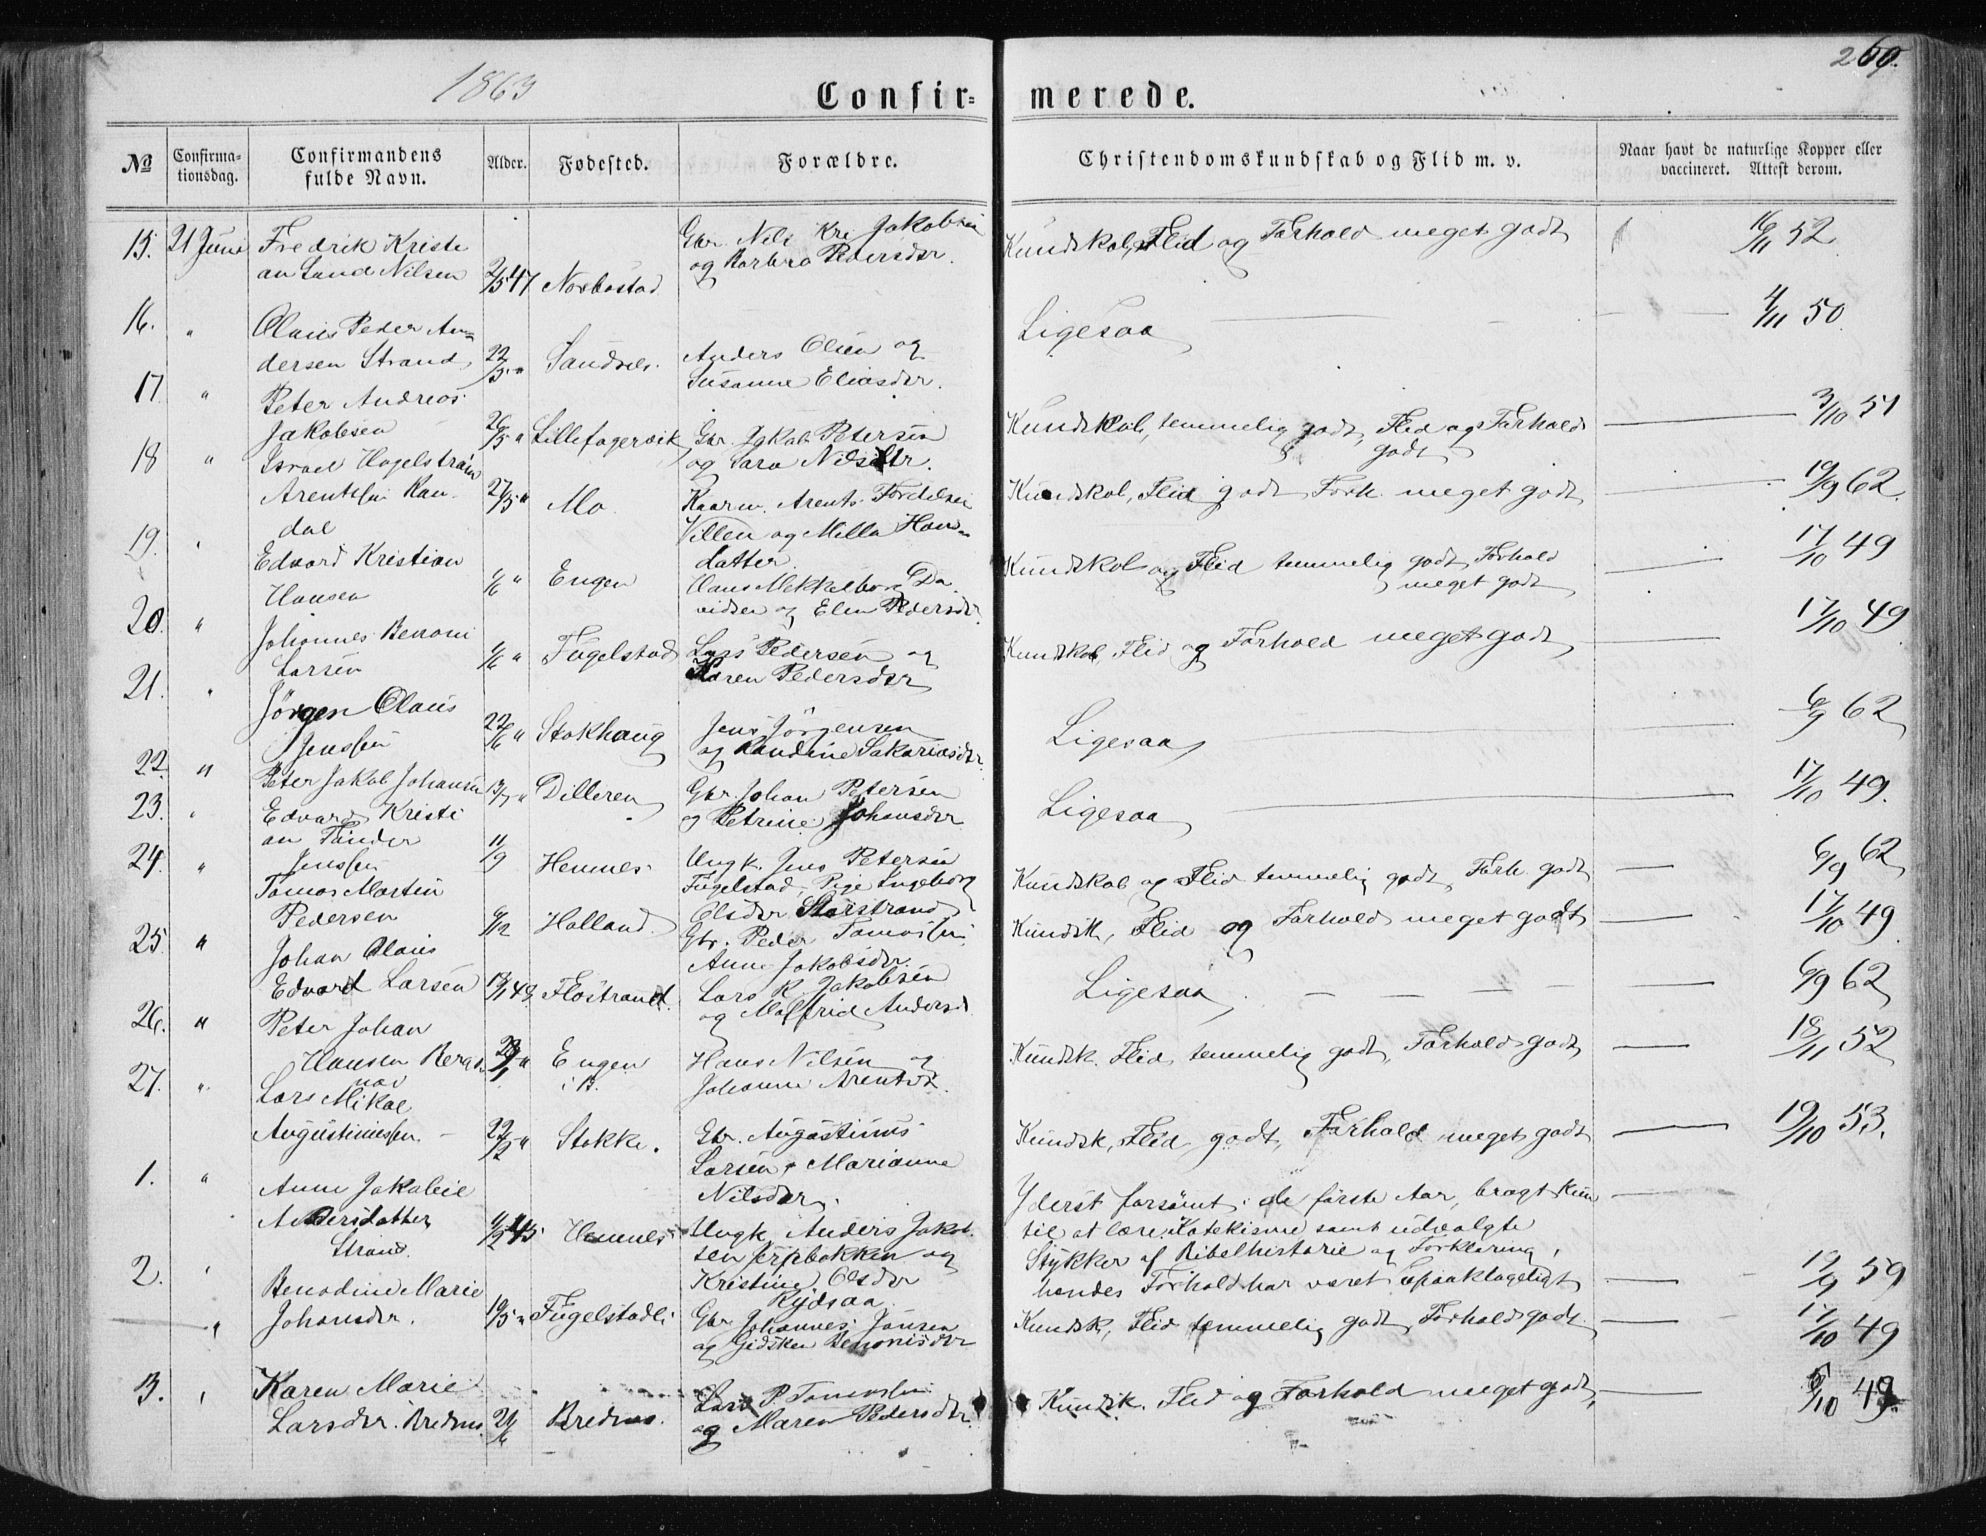 1863
Confir=
merede.
269.
No
Confirma-
tionsdag.
Confirmandens
fulde Navn.
Alder.
Fødested.
Forældre.
Christendomskundskab og Flid m. v.
Naar havt de naturlige Kopper eller
vaccineret. Attest derom.
15. 21 Juni Fredrik Kristi
an Lund Nilsen 2/5 47
Gbr. Nils Kr. Jakobsen
og Barbro Pedersdtr.
Kundskab, Flid og Forhold meget godt 16/11 52
16. " Olaus Peder An=
dersen Strand 22/5 "
Anders Olsen og
Susanne Eliasdtr.
Ligesaa 4/11 50
17 " Peter Andreas
Jakobsen 26/5 " Lillefagervik
Gbr. Jakob Petersen
og Sara Nilsdtr.
Kundskab, temmelig godt, Flid og Forhold
godt 3/10 51
18 " Israel Hagelstrøm
Arentsen Ran
dal 27/5 " Mo
Arent
Villen og Milla Hans-
datter.
Kundskab, Flid godt Forh. meget godt 19/9 62.
19. " Edvard Kristian
Hansen 1/6 " Engen
Da
vidsen og Elen Pedersdtr.
Kundskab og Flid temmelig godt, Forhold
meget godt 17/10 49
20. " Johannes Benoni
Larsen 1/6 " Fugelstad
Lars Pedersen og
Karen Pedersdtr
Kundskab, Flid og Forhold meget godt 17/10 49.
21. " Jörgen Olaus
Jenssen 22/6 " Stokhaug
Jens Jörgensen
og Randine Sakariasdtr.
Ligesaa 6/9 62
22. " Peter Jakob Johansen 13/7 " Dilleren
Gbr. Johan Petersen
og Petrine Johansdtr
Ligesaa 17/10 49.
23. " Edvard Kristi
an Tünder
Jenssen 11/9 Hemnes
Ungk. Jens Petersen
Fugelstad, Pige Ingeborg
Olsdtr Storstrand
Kundskab og Flid temmelig godt, Forh. godt 6/9 62
24. " Tomas Martin
Pedersen 6/12 Holland.
Gbr. Peder Tomassen,
Anne Jakobsdtr.
Kundsk, Flid og Forhold meget godt 17/10 49
25. " Johan Olaus
Edvard Larsen 13/1 48 Flostrand.
Lars R. Jakobsen
og Malfrid Andersd
Ligesaa. 6/9 62
26. " Peter Johan
Hansen 1 " Engen
i B.
Hans Nilsen og
Johanne Arentsd.
Kundsk. Flid temmelig godt, Forhold godt 18/11 52
27. " Lars Mikal
Augustinussen. 22/2 " Stokke.
Gbr. Augustinus
Larsen & Marianne
Nilsdtr.
Kundsk, Flid godt, Forhold meget godt 19/10 53.
1. " Anne Jakobie
Andersdatter
Strand. 45 Hemnes
Ungk. Anders Jakob-
sen Jerpebakken og
Kristine Olsdtr
Rydsaa
Yderst forsömt i de förste Aar, bragt kun
til at lære Katekisme samt udvalgte
Stykker af Bibelhistorie og Forklaring,
hendes Forhold har været upaaklageligt 19/9 59
2. " Benodine Marie
Johansdtr. 19/5 " Fugelstadli
Gbr Johannes Jonsen
og Gidsken Benonisdtr
Kundsk, Flid temmelig godt, Forhold godt. 17/10 49
3. " Karen Marie
Larsdtr. Brednes. 21/6 Brednes.
Lars P. Tomassen
og Maren Pedersdtr.
Kundsk. Flid og Forhold meget godt, /10 49